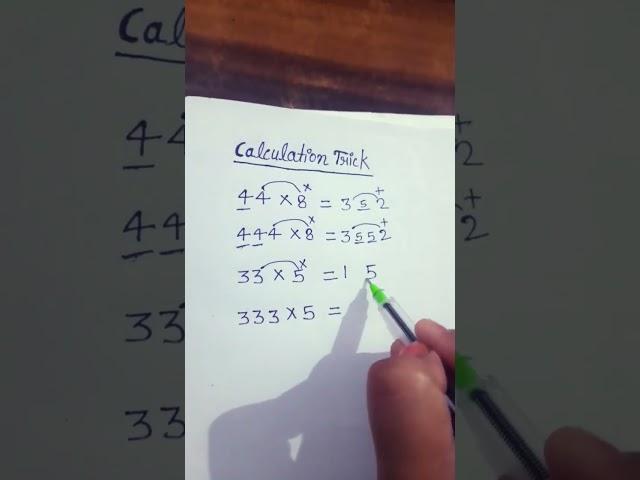 Calculation Trick
44 × 8 = 352
444 × 8 = 3552
33 × 5 = 1 5
333 × 5 =